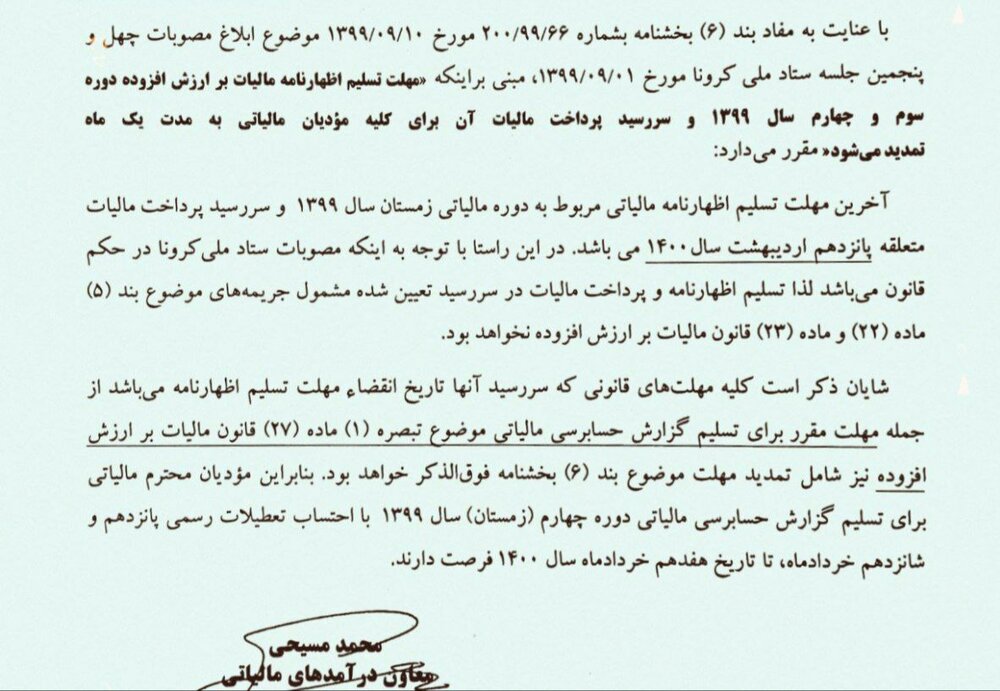 با عنایت به مفاد بند (۶) بخشنامه بشماره ۲۰۰/۹۹/۶۶ مورخ ۱۳۹۹/۰۹/۱۰ موضوع ابلاغ مصوبات چهل و
پنجمین جلسه ستاد ملی کرونا مورخ ۱۳۹۹/۰۹/۰۱، مبنی براینکه «مهلت تسلیم اظهارنامه مالیات بر ارزش افزوده دوره
سوم و چهارم سال ۱۳۹۹ و سررسید پرداخت مالیات آن برای کلیه مؤدیان مالیاتی به مدت یک ماه
تمدید می‌شود« مقرر می‌دارد:
آخرین مهلت تسلیم اظهارنامه مالیاتی مربوط به دوره مالیاتی زمستان سال ۱۳۹۹ و سررسید پرداخت مالیات
متعلقه پانزدهم اردیبهشت سال ۱۴۰۰ می باشد. در این راستا با توجه به اینکه مصوبات ستاد ملی کرونا در حکم
قانون می‌باشد لذا تسلیم اظهارنامه و پرداخت مالیات در سررسید تعیین شده مشمول جریمه‌های موضوع بند (۵)
ماده (۲۲) و ماده (۲۳) قانون مالیات بر ارزش افزوده نخواهد بود.
شایان ذکر است کلیه مهلت‌های قانونی که سررسید آنها تاریخ انقضاء مهلت تسلیم اظهارنامه می‌باشد از
جمله مهلت مقرر برای تسلیم گزارش حسابرسی مالیاتی موضوع تبصره (۱) ماده (۲۷) قانون مالیات بر ارزش
افزوده نیز شامل تمدید مهلت موضوع بند (۶) بخشنامه فوق‌الذکر خواهد بود. بنابراین مؤدیان محترم مالیاتی
برای تسلیم گزارش حسابرسی مالیاتی دوره چهارم (زمستان) سال ۱۳۹۹ با احتساب تعطیلات رسمی پانزدهم و
شانزدهم خردادماه، تا تاریخ هفدهم خردادماه سال ۱۴۰۰ فرصت دارند.
محمد مسیحی
معاون درآمدهای مالیاتی